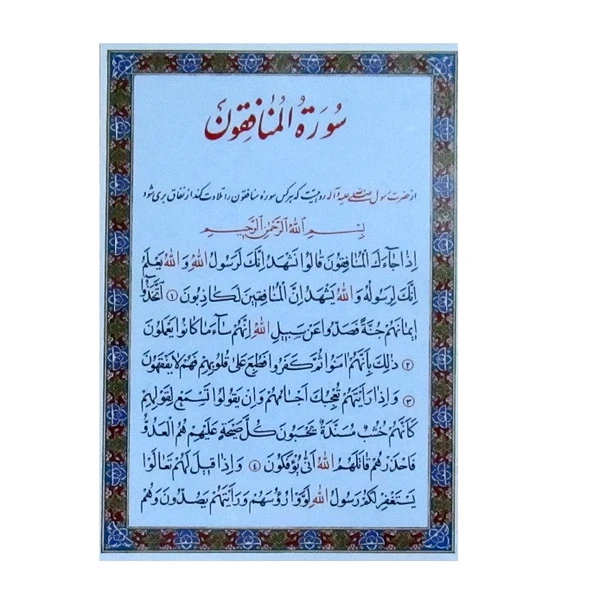 سُورَةُ الْمُنَافِقُونَ
از حضرت رسول صلی الله علیه و آله روایتست که هرکس سوره منافقون را تلاوت کند از نفاق بری شود
بِسْمِ اللهِ الرَّحْمنِ الرَّحيمِ
اِذَا جَاءَكَ الْمُنَافِقُونَ قَالُوا نَشْهَدُ اِنَّكَ لَرَسُولُ اللهِ وَ اللهُ يَعْلَمُ
اِنَّكَ لَرَسُولُهُ وَ اللهُ يَشْهَدُ اِنَّ الْمُنَافِقِينَ لَكَاذِبُونَ ﴿۱﴾ اتَّخَذُوا
اَيْمَانَهُمْ جُنَّةً فَصَدُّوا عَنْ سَبِيلِ اللهِ اِنَّهُمْ سَاءَ مَا كَانُوا يَعْمَلُونَ
﴿۲﴾ ذلِكَ بِاَنَّهُمْ امَنُوا ثُمَّ كَفَرُوا فَطُبِعَ عَلى قُلُوبِهِمْ فَهُمْ لَا يَفْقَهُونَ
﴿۳﴾ وَ اِذَا رَاَيْتَهُمْ تُعْجِبُكَ اَجْسَامُهُمْ وَ اِنْ يَقُولُوا تَسْمَعْ لِقَوْلِهِمْ
كَاَنَّهُمْ خُشُبٌ مُسَنَّدَةٌ يَحْسَبُونَ كُلَّ صَيْحَةٍ عَلَيْهِمْ هُمُ الْعَدُوُّ
فَاحْذَرْهُمْ قَاتَلَهُمُ اللهُ اَنّى يُؤْفَكُونَ ﴿۴﴾ وَ اِذَا قِيلَ لَهُمْ تَعَالَوْا
يَسْتَغْفِرْ لَكُمْ رَسُولُ اللهِ لَوَّوْا رُؤُسَهُمْ وَ رَاَيْتَهُمْ يَصُدُّونَ وَ هُمْ